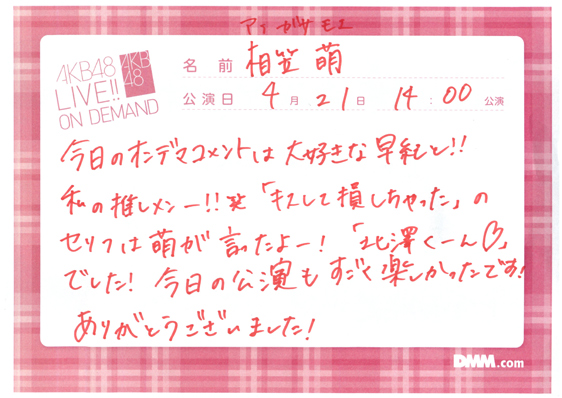 アイガサモエ
AKB48
LIVE!!
ON DEMAND
AKB
48
名 前 相笠 萌
公演日 4月21日 14:00公演
今日のオンデマコメントは大好きな早紀と!!
私の推しメンー!!笑「キスして損しちゃった」の
セリフは萌が言ったよー!「北澤くーん♡」
でした!今日の公演もすごく楽しかったです!
ありがとうございました!
DMM.com